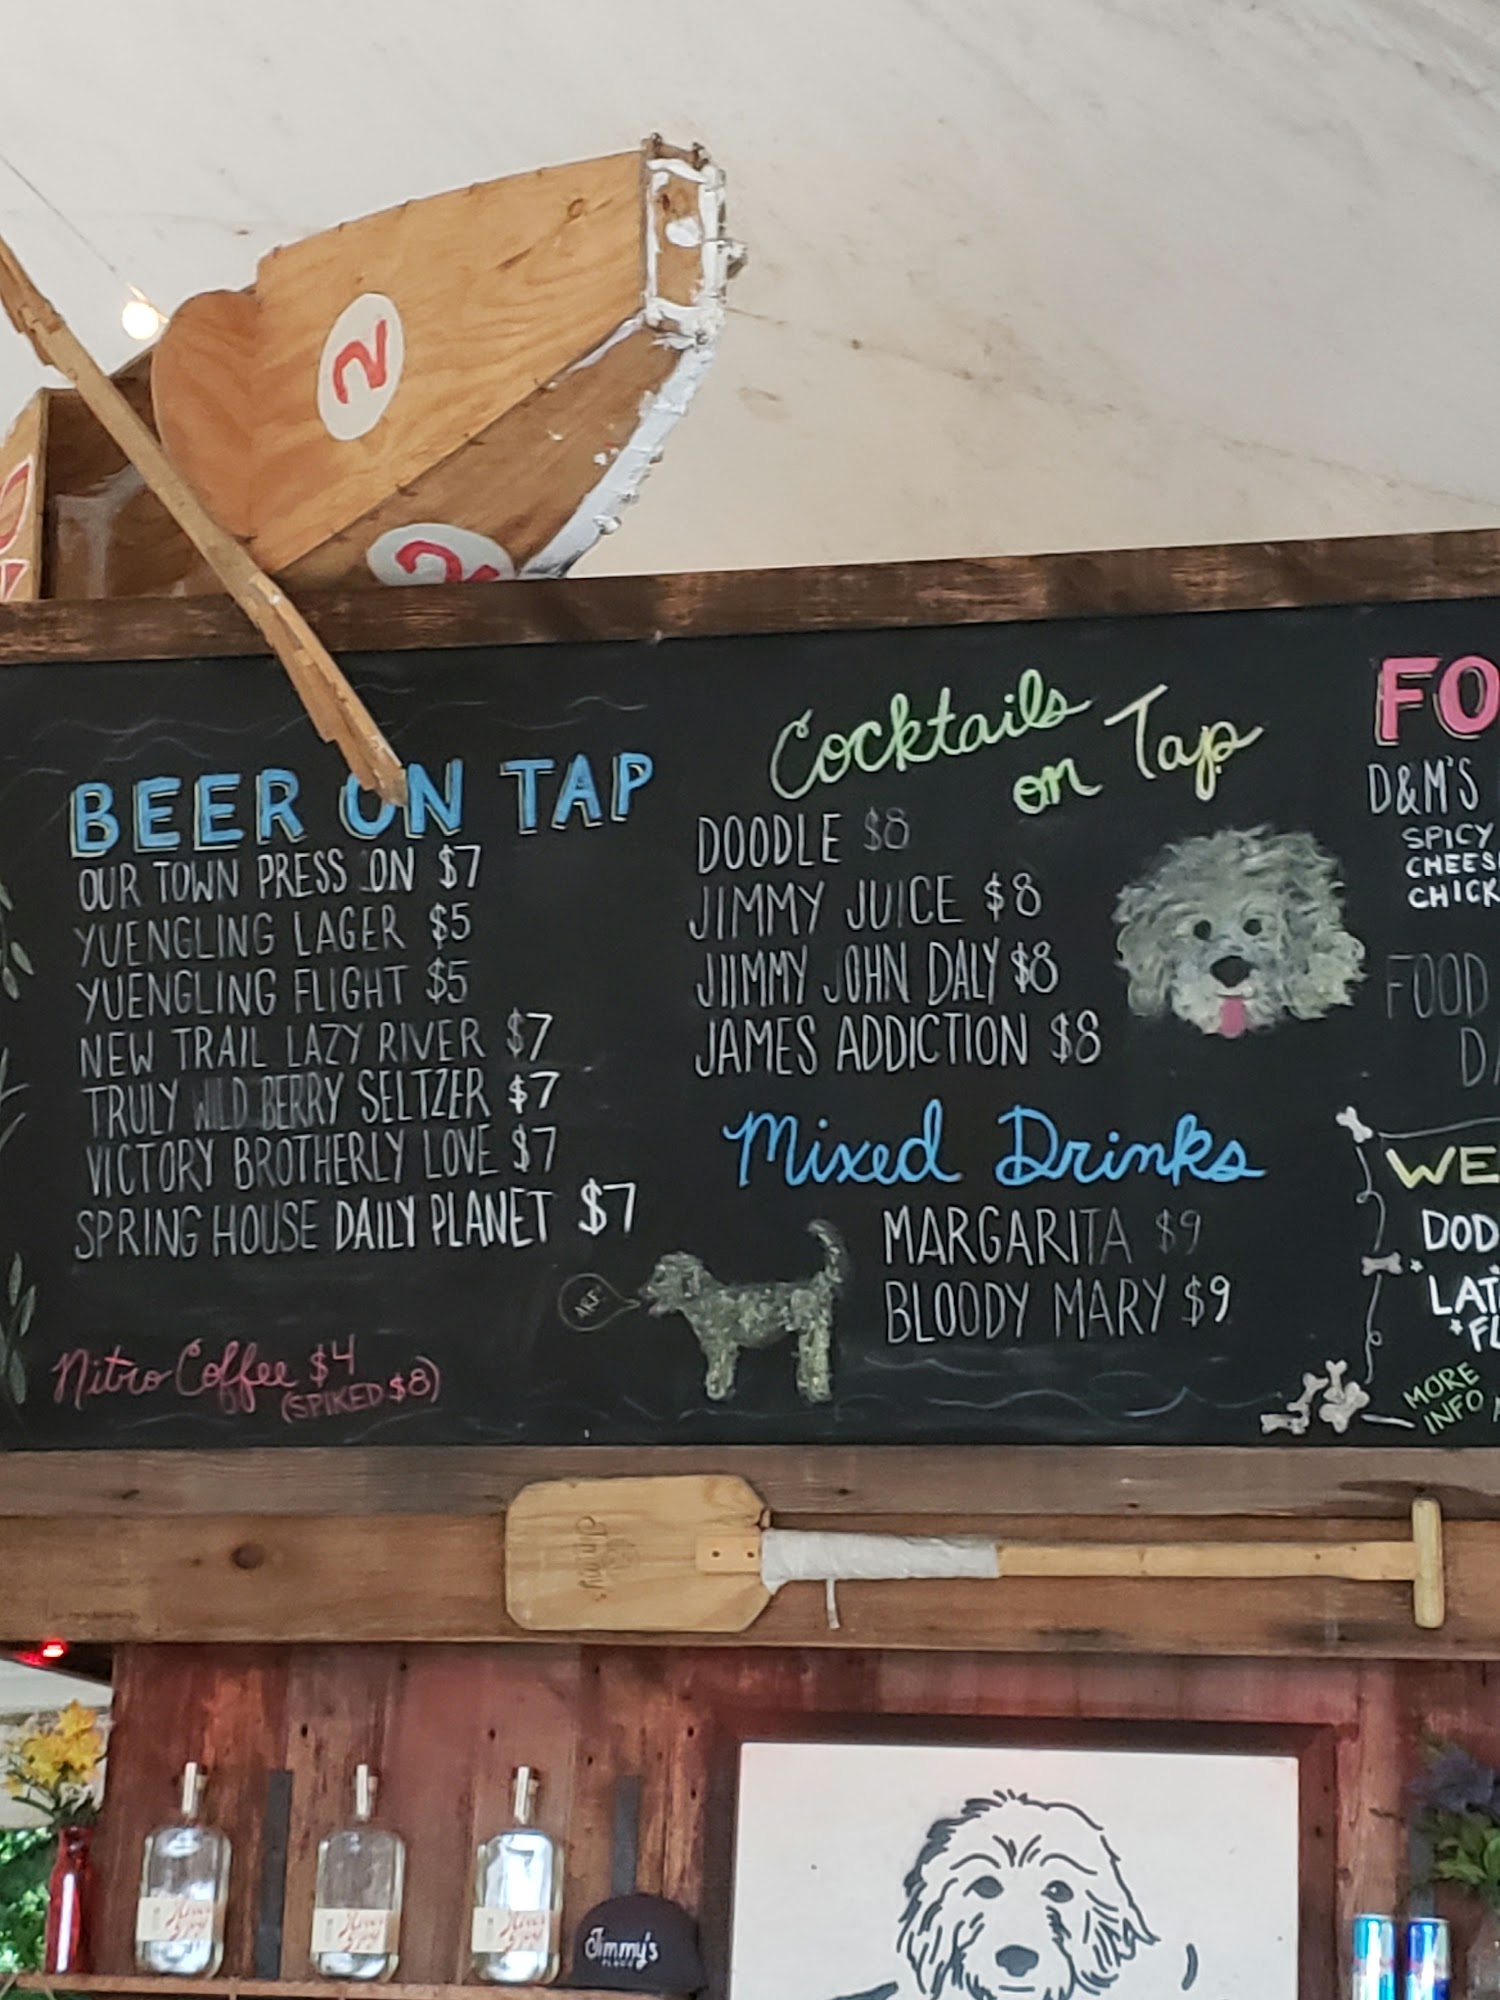 2
2
BEER ON TAP
OUR TOWN PRESS ON $7
YUENGLING LAGER $5
YUENGLING FLIGHT $5
NEW TRAIL LAZY RIVER $7
TRULY WILD BERRY SELTZER $7
VICTORY BROTHERLY LOVE $7
SPRING HOUSE DAILY PLANET $7
Nitro Coffee $4
(SPIKED $8)
Cocktails
on Tap
DOODLE $8
JIMMY JUICE $8
JIIMMY JOHN DALY $8
JAMES ADDICTION $8
Mixed Drinks
MARGARITA $9
BLOODY MARY $9
ARF!
FO
D&M'S
SPICY
CHEES
CHICK
FOOD
DA
WE
DOD
LAT
*FL
MORE
INFO
Jimmy's
Jimmy's
PLACE